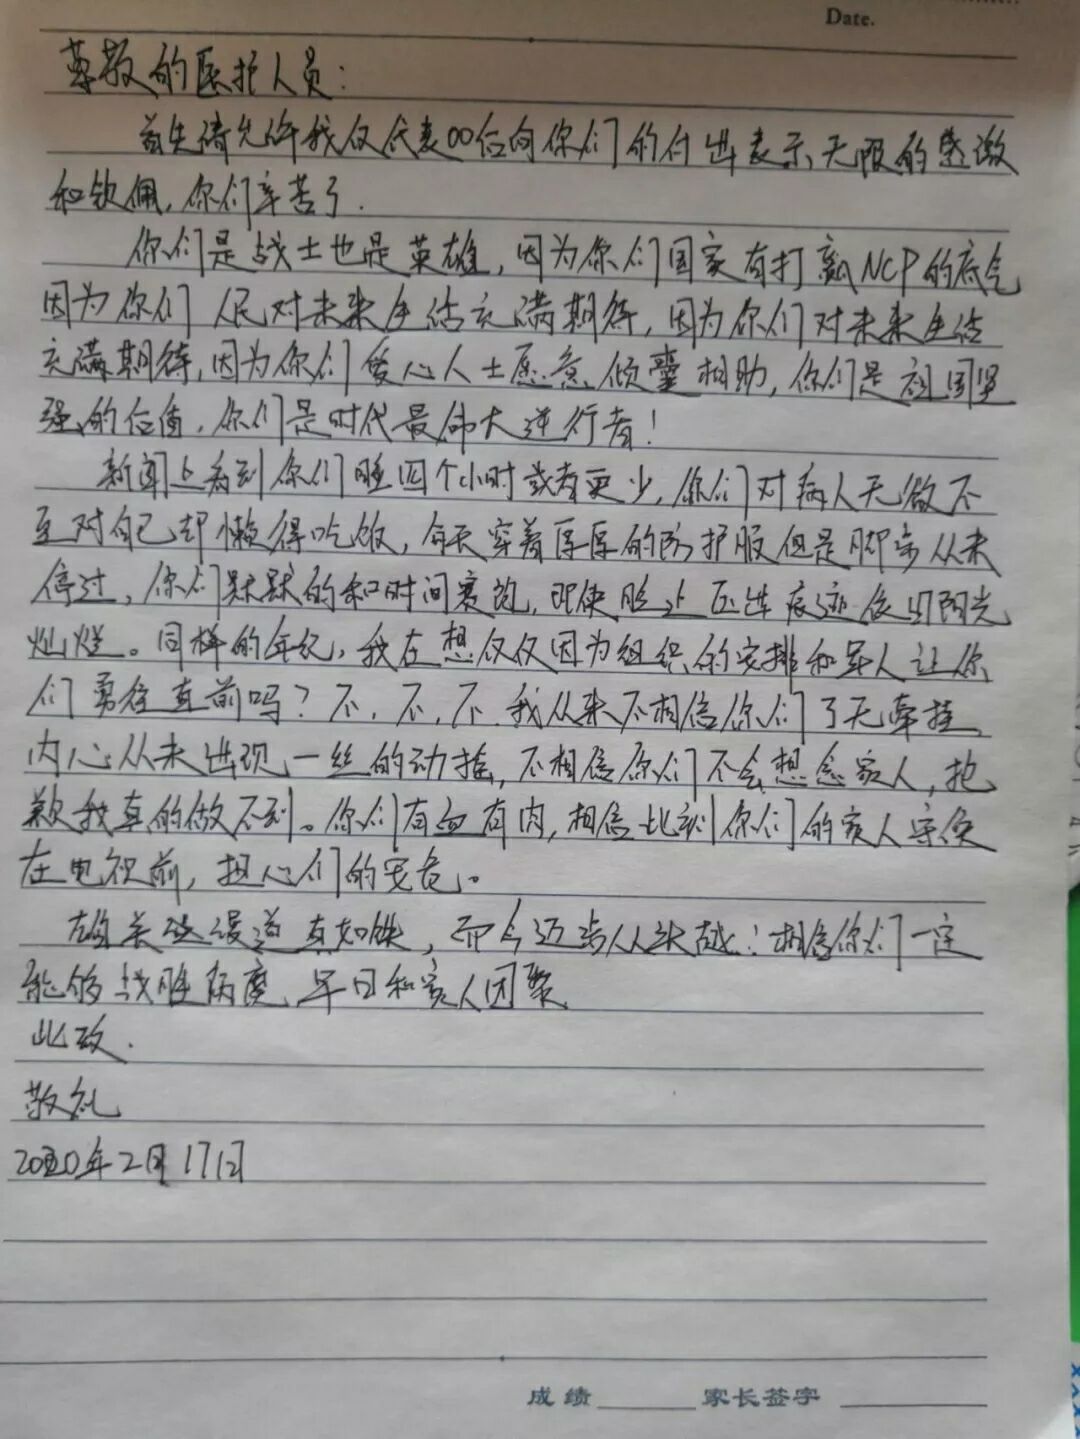 Date.
尊敬的医护人员：
首先请允许我仅代表00后向你们的付出表示无限的感激
和钦佩，你们辛苦了.
你们是战士也是英雄，因为你们国家有打赢NCP的底气
因为你们 人民对未来生活充满期待，因为你们对未来生活
充满期待，因为你们爱心人士愿意倾囊相助，你们是祖国坚
强的后盾，你们是时代最伟大逆行者！
新闻上看到你们睡四个小时或者更少，你们对病人无微不
至对自己却懒得吃饭，每天穿着厚厚的防护服但是脚步从未
停过，你们默默的和时间赛跑，即使脸上压出痕迹依旧阳光
灿烂。同样的年纪，我在想仅仅因为组织的安排和军人让你
们勇往直前吗？不，不，不，我从来不相信你们了无牵挂，
内心从未出现一丝的动摇，不相信你们不会想念家人，抱
歉我真的做不到。你们有血有肉，相信此刻你们的家人守候
在电视前，担心们的安危。
雄关漫道真如铁，而今迈步从头越！相信你们一定
能够战胜病魔，早日和家人团聚
此致.
敬礼
2020年2月17日
成绩 家长签字